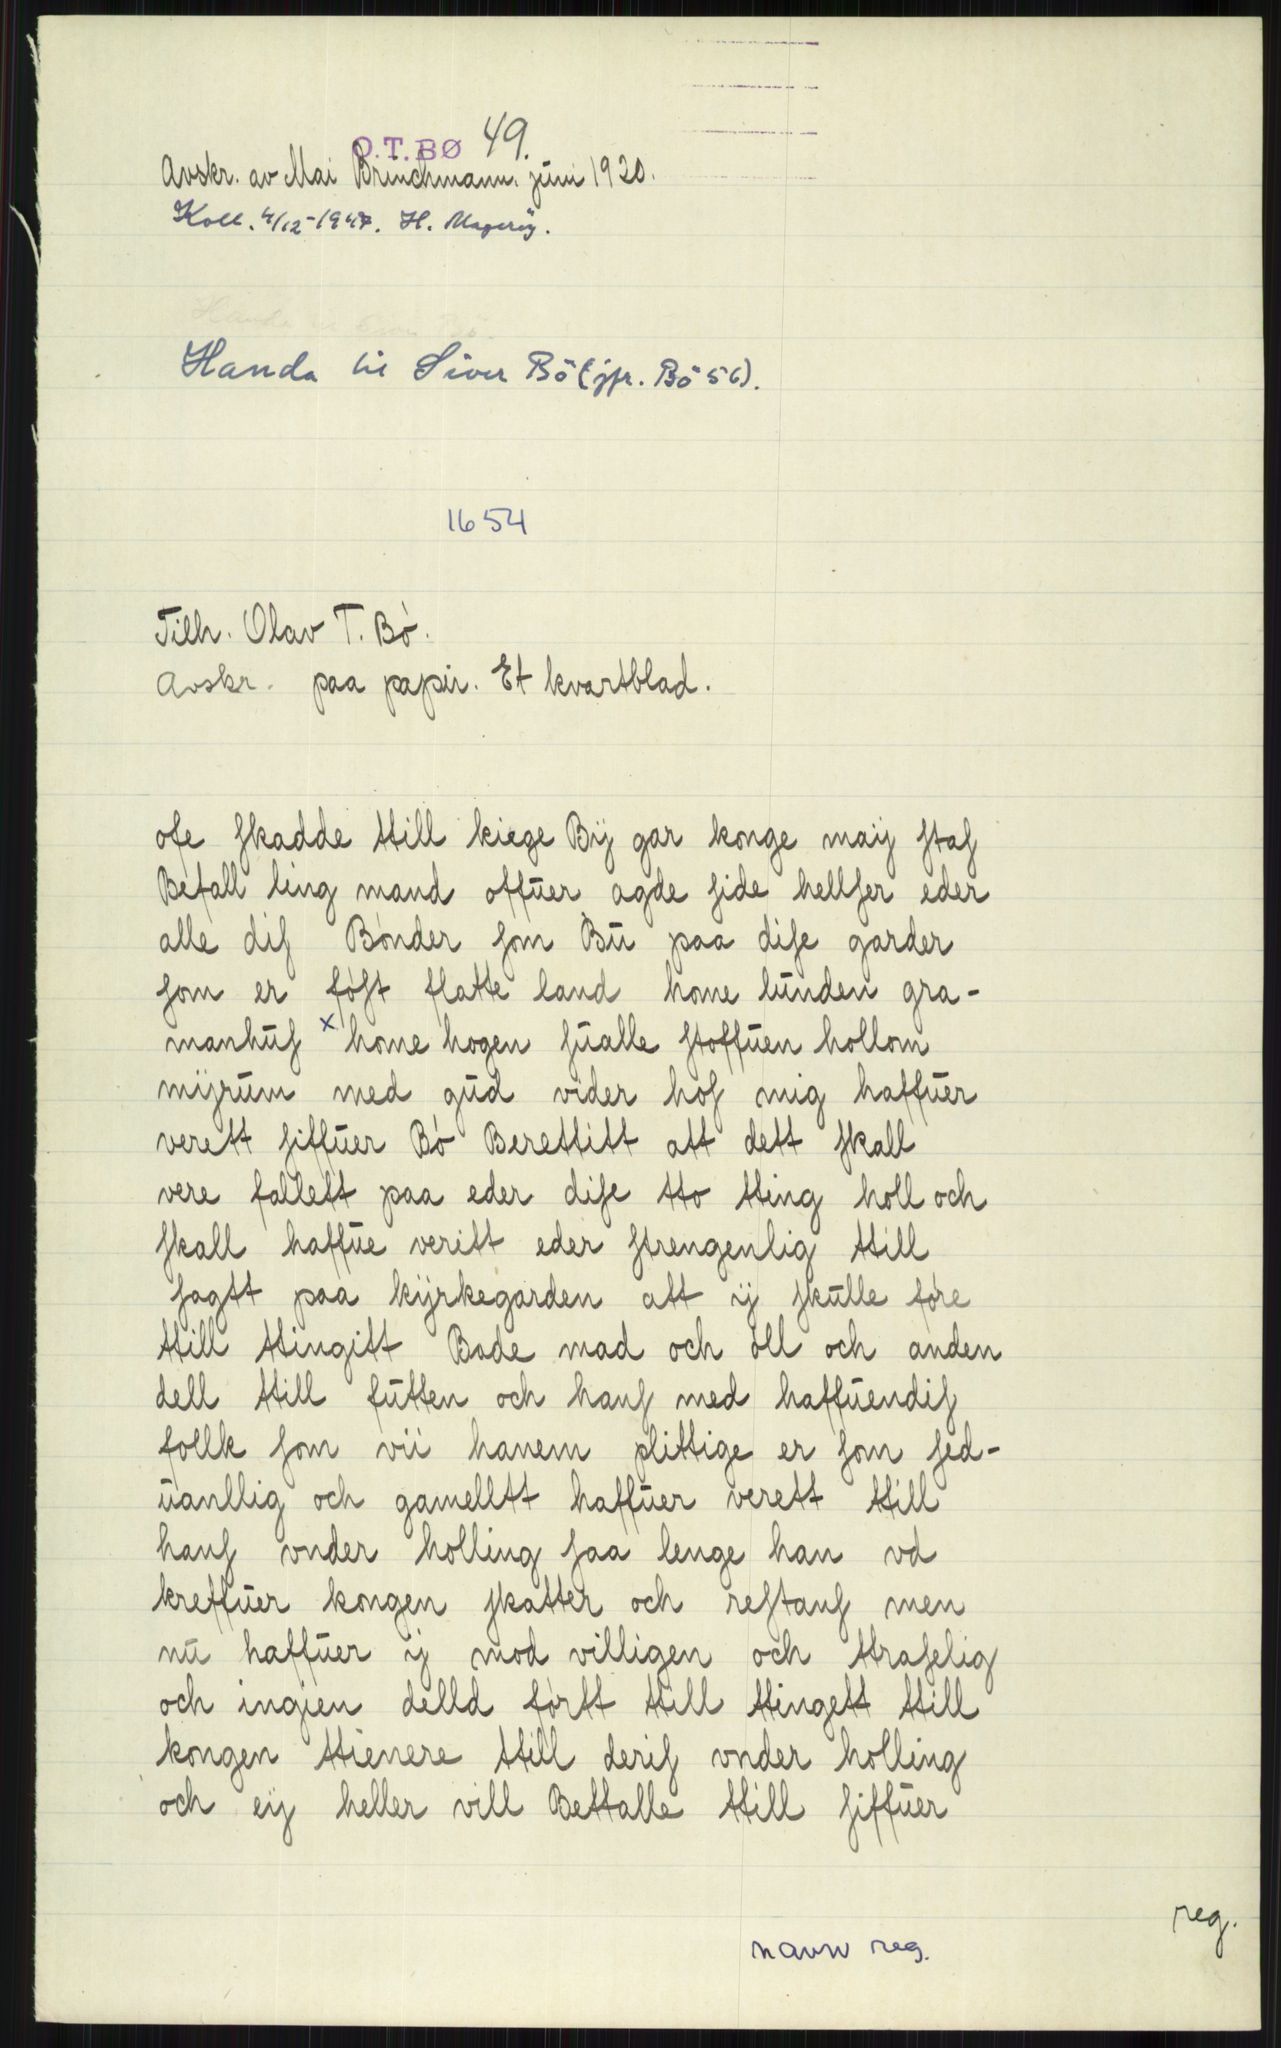 O.T. BØ 49.
Avskr. av Mai Brinchmann. juni 1920.
Koll. 4/12-1947. H. Magerøy.
Handa til Siver Bö (jfr. Bö 56).
1654
Tilh. Olav T. Bó.
Avskr. paa papir. Et kvartblad.
ose skadde ttill kiege Bÿ gar konge maiÿ stas
Befall ling mand offuer agde side hellser eder
alle dis Bonder som Bu paa dise garder
som er fost flatte land home lunden gra-
manhus x home hogen sualle stoffuen hollom
mÿrum med gud vider hos mig haffuer
verett siffuer Bó Berettitt att dett skall
vere fallett paa eder dise tto tting holl och
skall haffue veritt eder strengenlig ttill
sagtt paa kÿrkegarden att ÿ skulle fore
ttill ttingitt Bode mad och óll och anden
dell ttill futten och hans med haffuendis
follk som vii hanem plittige er som sed-
uanllig och gamelltt haffuer verett ttill
hans vnder holling saa lenge han vd
kreffuer kongen skatter och restans men
nu haffuer ÿ mod villigen och ttraselig
och ingien delld fortt ttill ttingett ttill
kongen ttienere ttill deris vnder holling
och eÿ heller vill Bettalle ttill siffuer
reg.
navn reg.